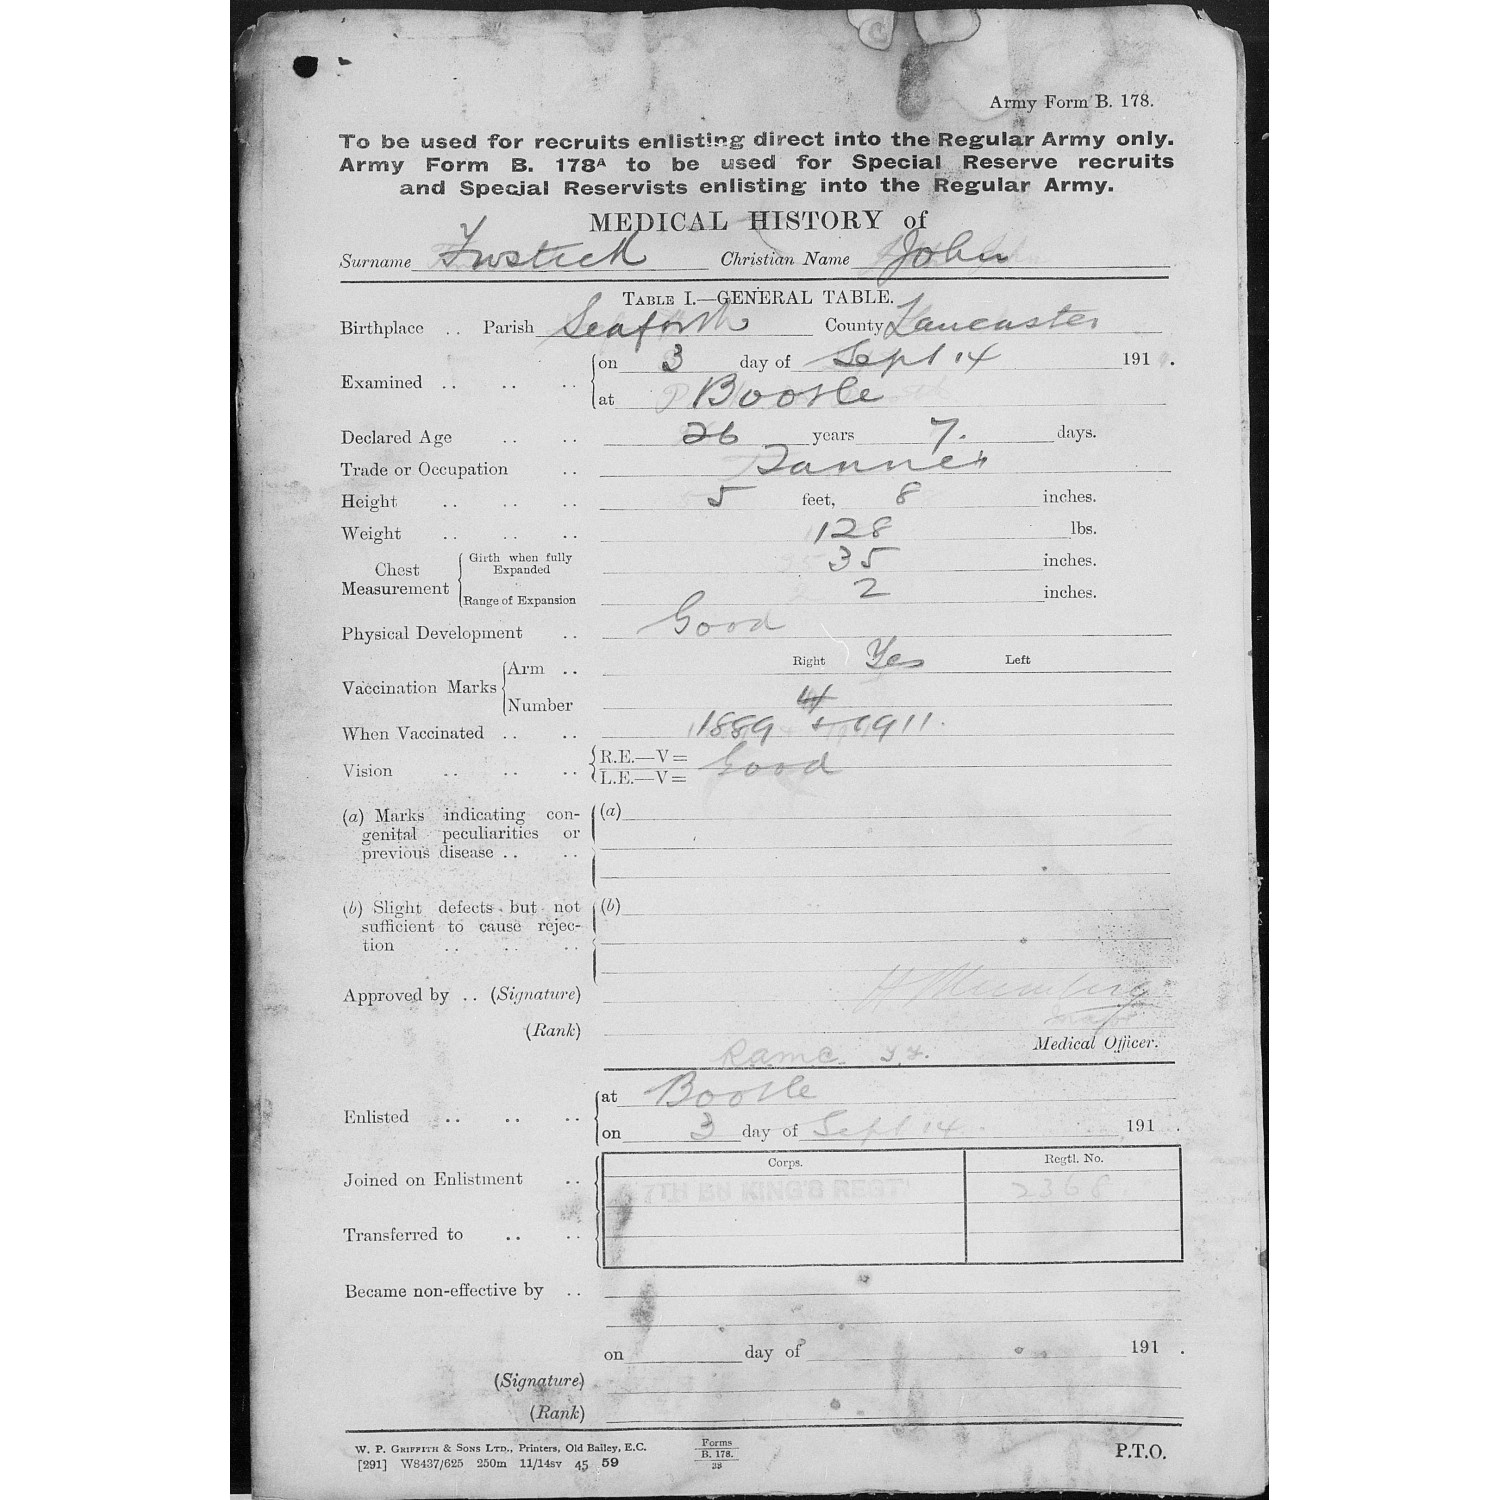 Army Form B. 178.
To be used for recruits enlisting direct into the Regular Army only.
Army Form B. 178A to be used for Special Reserve recruits
and Special Reservists enlisting into the Regular Army.
MEDICAL HISTORY of
Surname Christian Name John
TABLE I.—GENERAL TABLE.
Birthplace .. Parish Seaforth County Lancaster
Examined .. .. .. on 3 day of Sept 14 191 .
at Bootle
Declared Age .. .. 26 years 7. days.
Trade or Occupation .. Tanner
Height .. .. .. 5 feet, 8 inches.
Weight .. .. .. 128 lbs.
Chest Measurement Girth when fully Expanded 35 inches.
Range of Expansion 2 inches.
Physical Development .. Good
Vaccination Marks Arm .. Right Yes Left
Number 4
When Vaccinated .. .. 1889 + 1911.
Vision .. .. .. R.E.—V= Good
L.E.—V=
(a) Marks indicating con- (a)
genital peculiarities or
previous disease .. ..
(b) Slight defects but not (b)
sufficient to cause rejec-
tion .. .. ..
Approved by .. (Signature)
(Rank) Major
Medical Officer.
RAMC T.F.
Enlisted .. .. .. at Bootle
on 3 day of Sept 14 191 .
Corps. Regtl. No.
Joined on Enlistment .. 7TH BN KING'S REGT. 2368
Transferred to .. ..
Became non-effective by ..
on day of 191 .
(Signature)
(Rank)
W. P. GRIFFITH & SONS LTD., Printers, Old Bailey, E.C.
[291] W8437/625 250m 11/14sv 45 59
Forms
B. 178.
38
P.T.O.